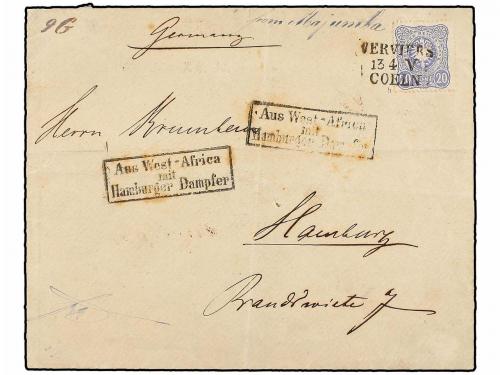 9G
from Majunka
Germany
VERVIERS
13 4 V
COELN
20
Herrn
Aus West-Africa
mit
Hamburger Dampfer
Aus West-Africa
mit
Hamburger Dampfer
Hamburg
Brandstwiete 7